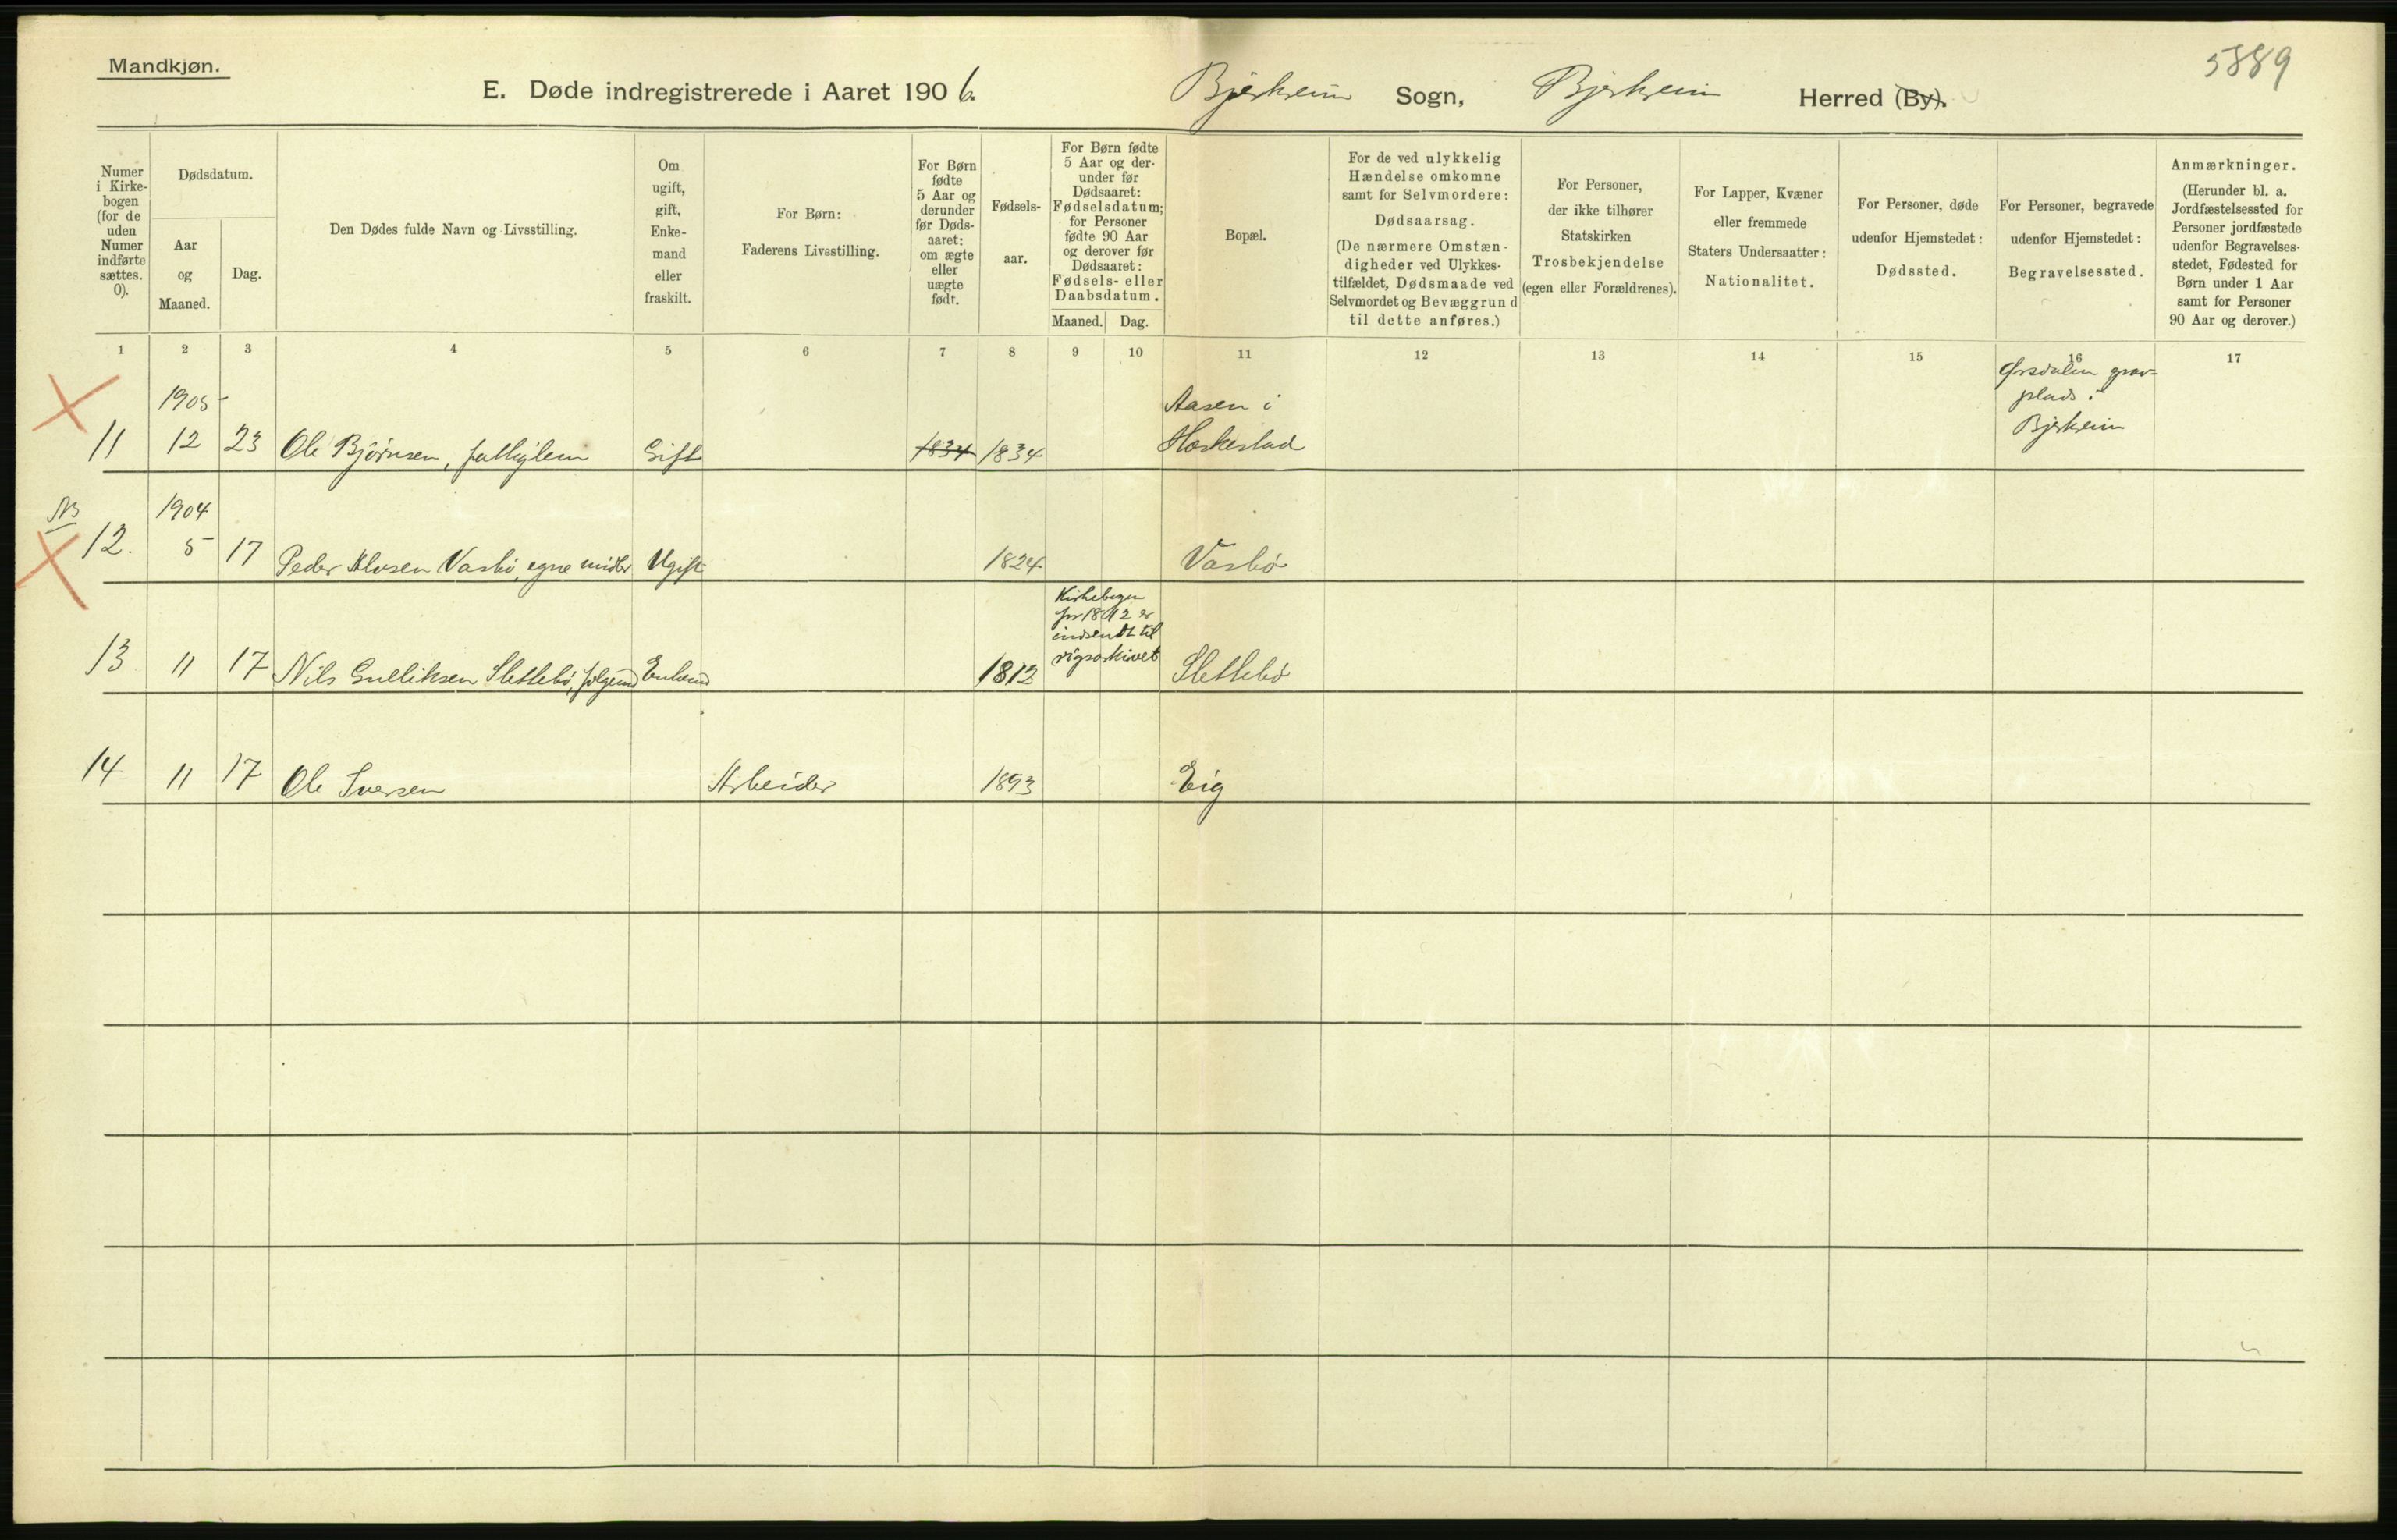 Mandkjøn.
5889
E. Døde indregistrerede i Aaret 1906. Bjerkreim Sogn, Bjerkreim Herred (By).
Numer i Kirkebogen (for de uden Numer indførte sættes. 0).
Dødsdatum.
Aar og Maaned.
Dag.
Den Dødes fulde Navn og Livsstilling.
Om ugift, gift, Enkemand eller fraskilt.
For Børn: Faderens Livsstilling.
For Børn fødte 5 Aar og derunder før Dødsaaret: om ægte eller uægte født.
Fødselsaar.
For Børn fødte 5 Aar og derunder før Dødsaaret: Fødselsdatum; for Personer fødte 90 Aar og derover før Dødsaaret: Fødsels- eller Daabsdatum.
Maaned. Dag.
Bopæl.
For de ved ulykkelig Hændelse omkomne samt for Selvmordere: Dødsaarsag. (De nærmere Omstændigheder ved Ulykkestilfældet, Dødsmaade ved Selvmordet og Bevæggrund til dette anføres.)
For Personer, der ikke tilhører Statskirken Trosbekjendelse (egen eller Forældrenes).
For Lapper, Kvæner eller fremmede Staters Undersaatter: Nationalitet.
For Personer, døde udenfor Hjemstedet: Dødssted.
For Personer, begravede udenfor Hjemstedet: Begravelsessted.
Anmærkninger. (Herunder bl. a. Jordfæstelsessted for Personer jordfæstede udenfor Begravelsesstedet, Fødested for Børn under 1 Aar samt for Personer 90 Aar og derover.)
1 2 3 4 5 6 7 8 9 10 11 12 13 14 15 16 17
1905
11 12 23 Ole Björnsen, fattiglem Gift 1834 1834 Aasen i Hæskestad Ørsdalen gravplads i Bjerkreim
NB
1904
12. 5 17 Peder Vasbö, egne midler Ugift 1824 Vasbö
13 11 17 Nils Gulliksen Slettebö, Enkemd 1812 Kirkebogen for 1812 er indsendt til rigsarkivet Slettebö
14 11 17 Ole Iversen Arbeider 1893 Eig